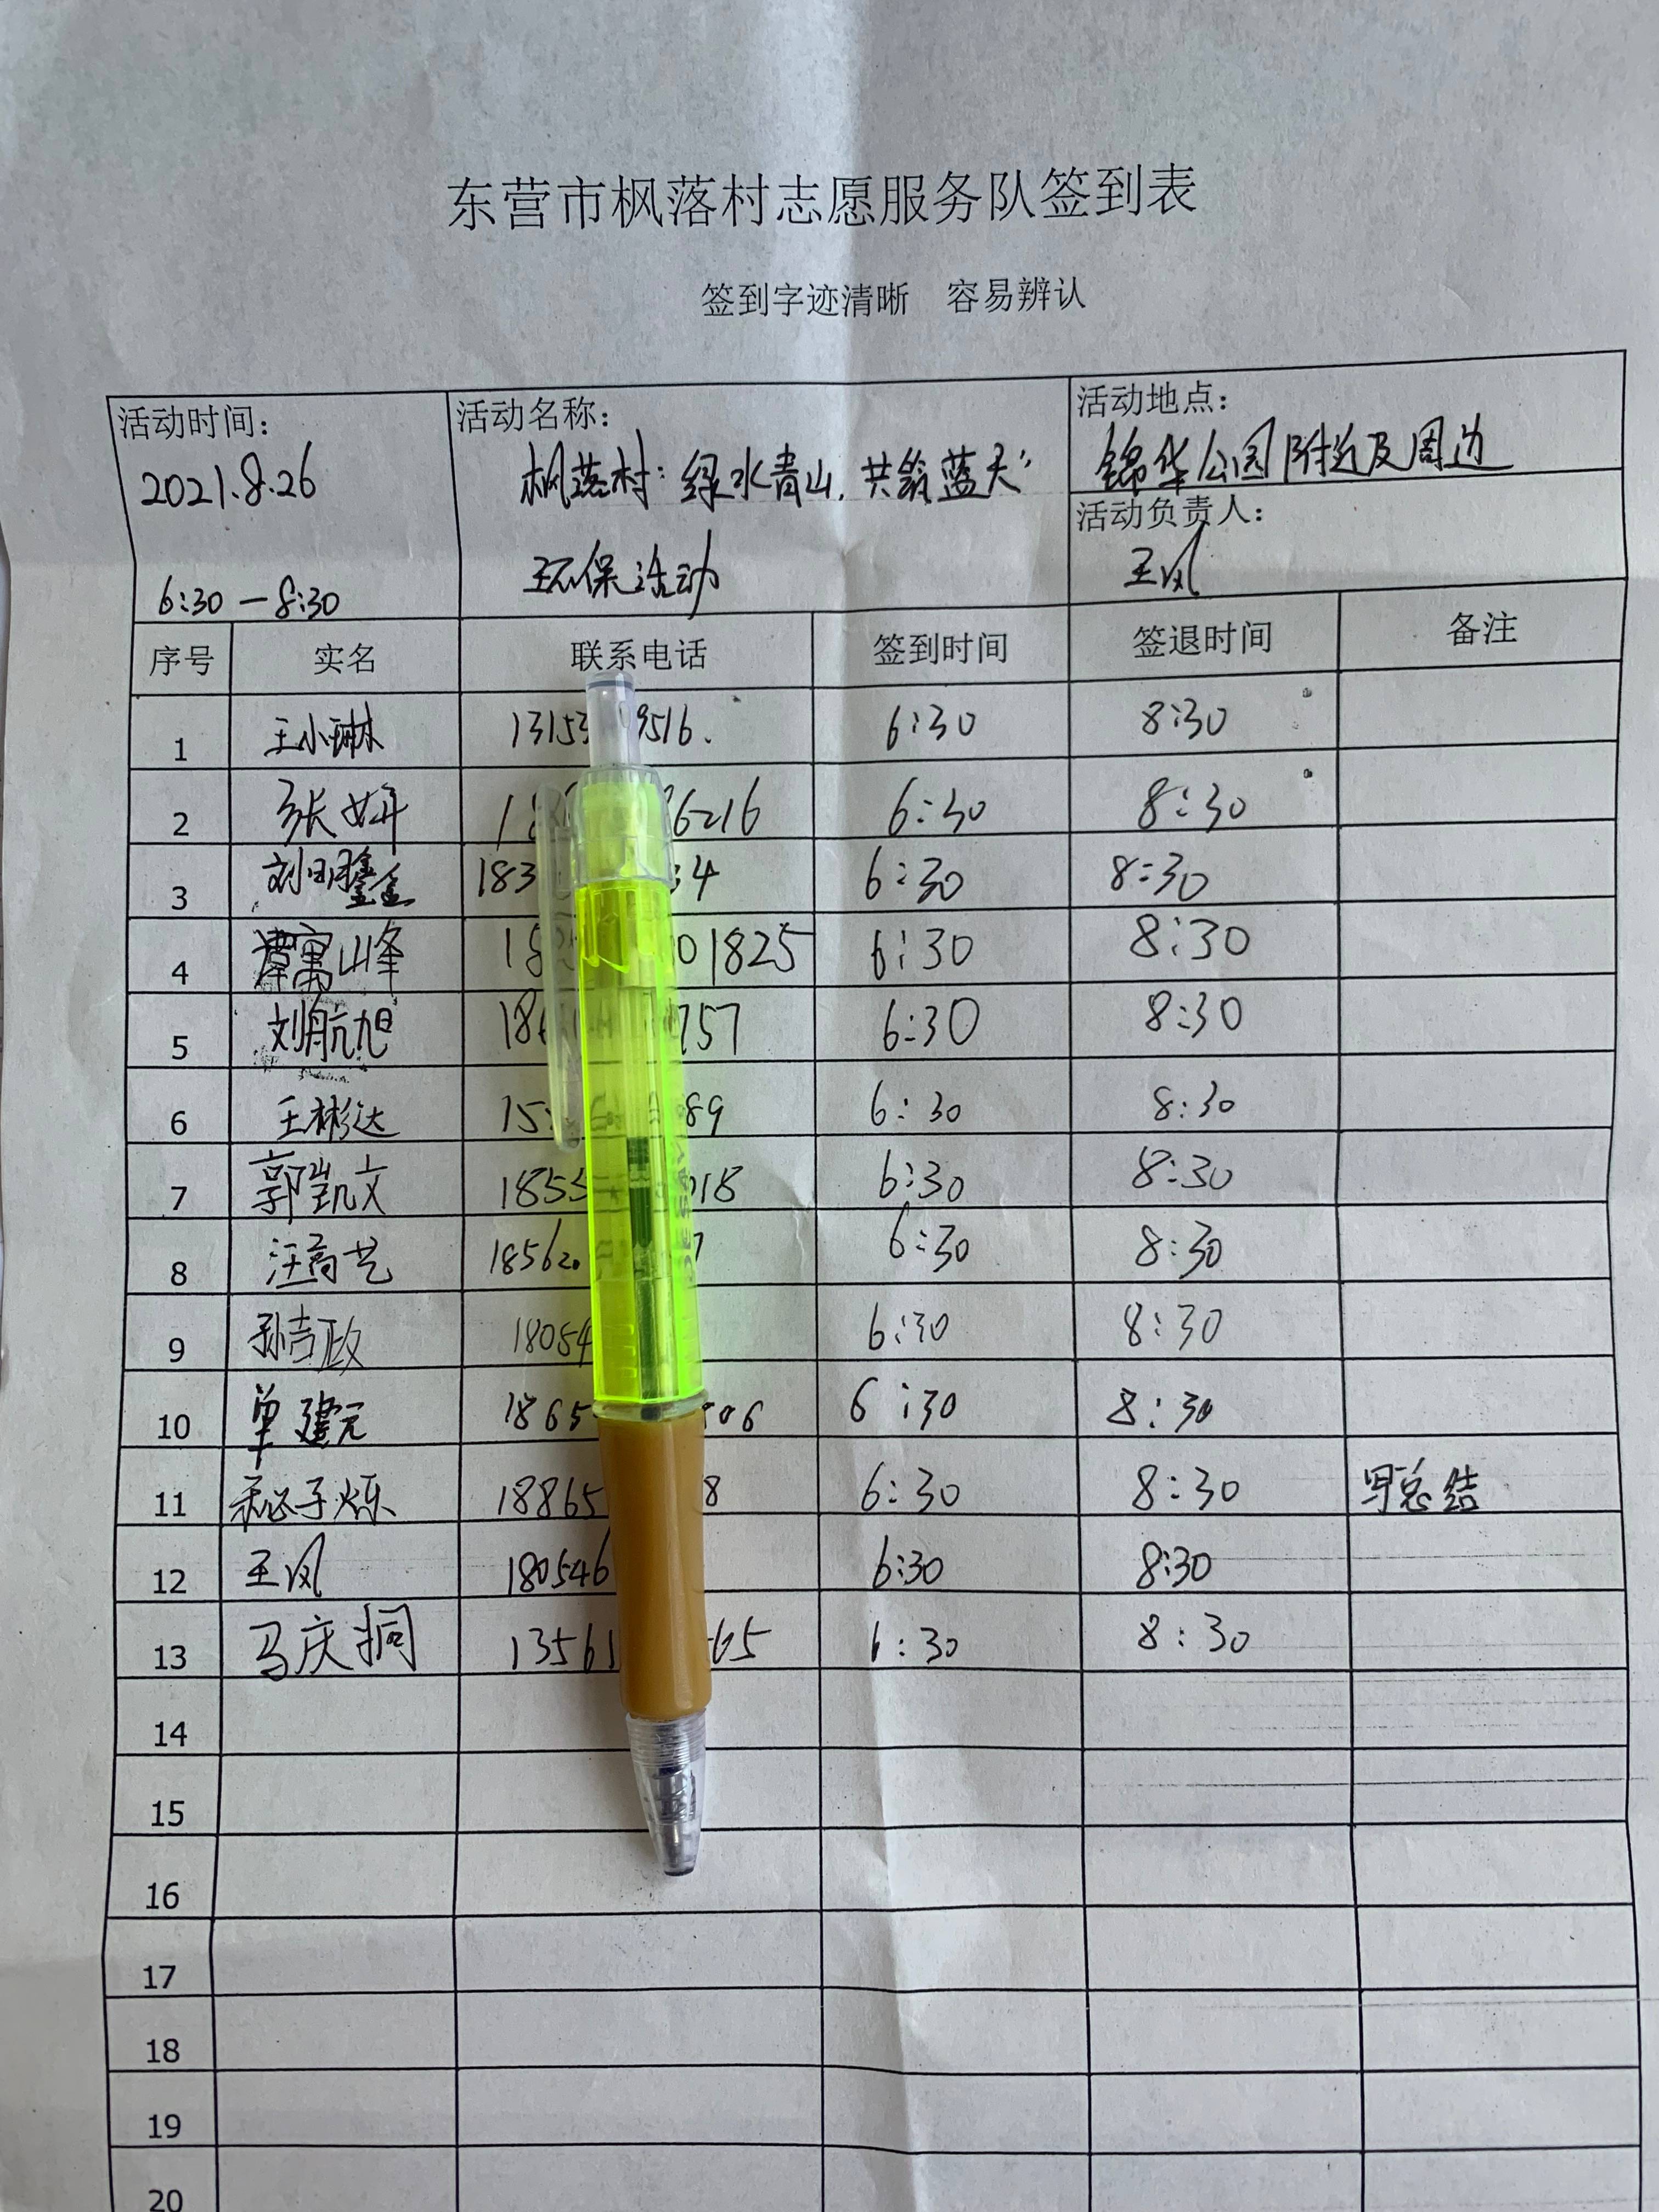 东营市枫落村志愿服务队签到表
签到字迹清晰 容易辨认
活动时间: 活动名称: 活动地点:
2021.8.26 枫落村:绿水青山,共筑蓝天" 锦华公园附近及周边
活动负责人:
6:30—8:30 环保活动 王凤
序号 实名 联系电话 签到时间 签退时间 备注
1 王小琳 13153 9516. 6:30 8:30
2 张妍 18 6216 6:30 8:30
3 刘明鑫 183 34 6:30 8:30
4 山峰 18 01825 6:30 8:30
5 刘航旭 18 757 6:30 8:30
6 王彬达 15 89 6:30 8:30
7 郭凯文 1855 018 6:30 8:30
8 汪高艺 18562 7 6:30 8:30
9 孙吉政 18054 6:30 8:30
10 单建元 1865 06 6:30 8:30
11 子烁 18865 8 6:30 8:30 写总结
12 王凤 180546 6:30 8:30
13 马庆 13561 65 6:30 8:30
14
15
16
17
18
19
20